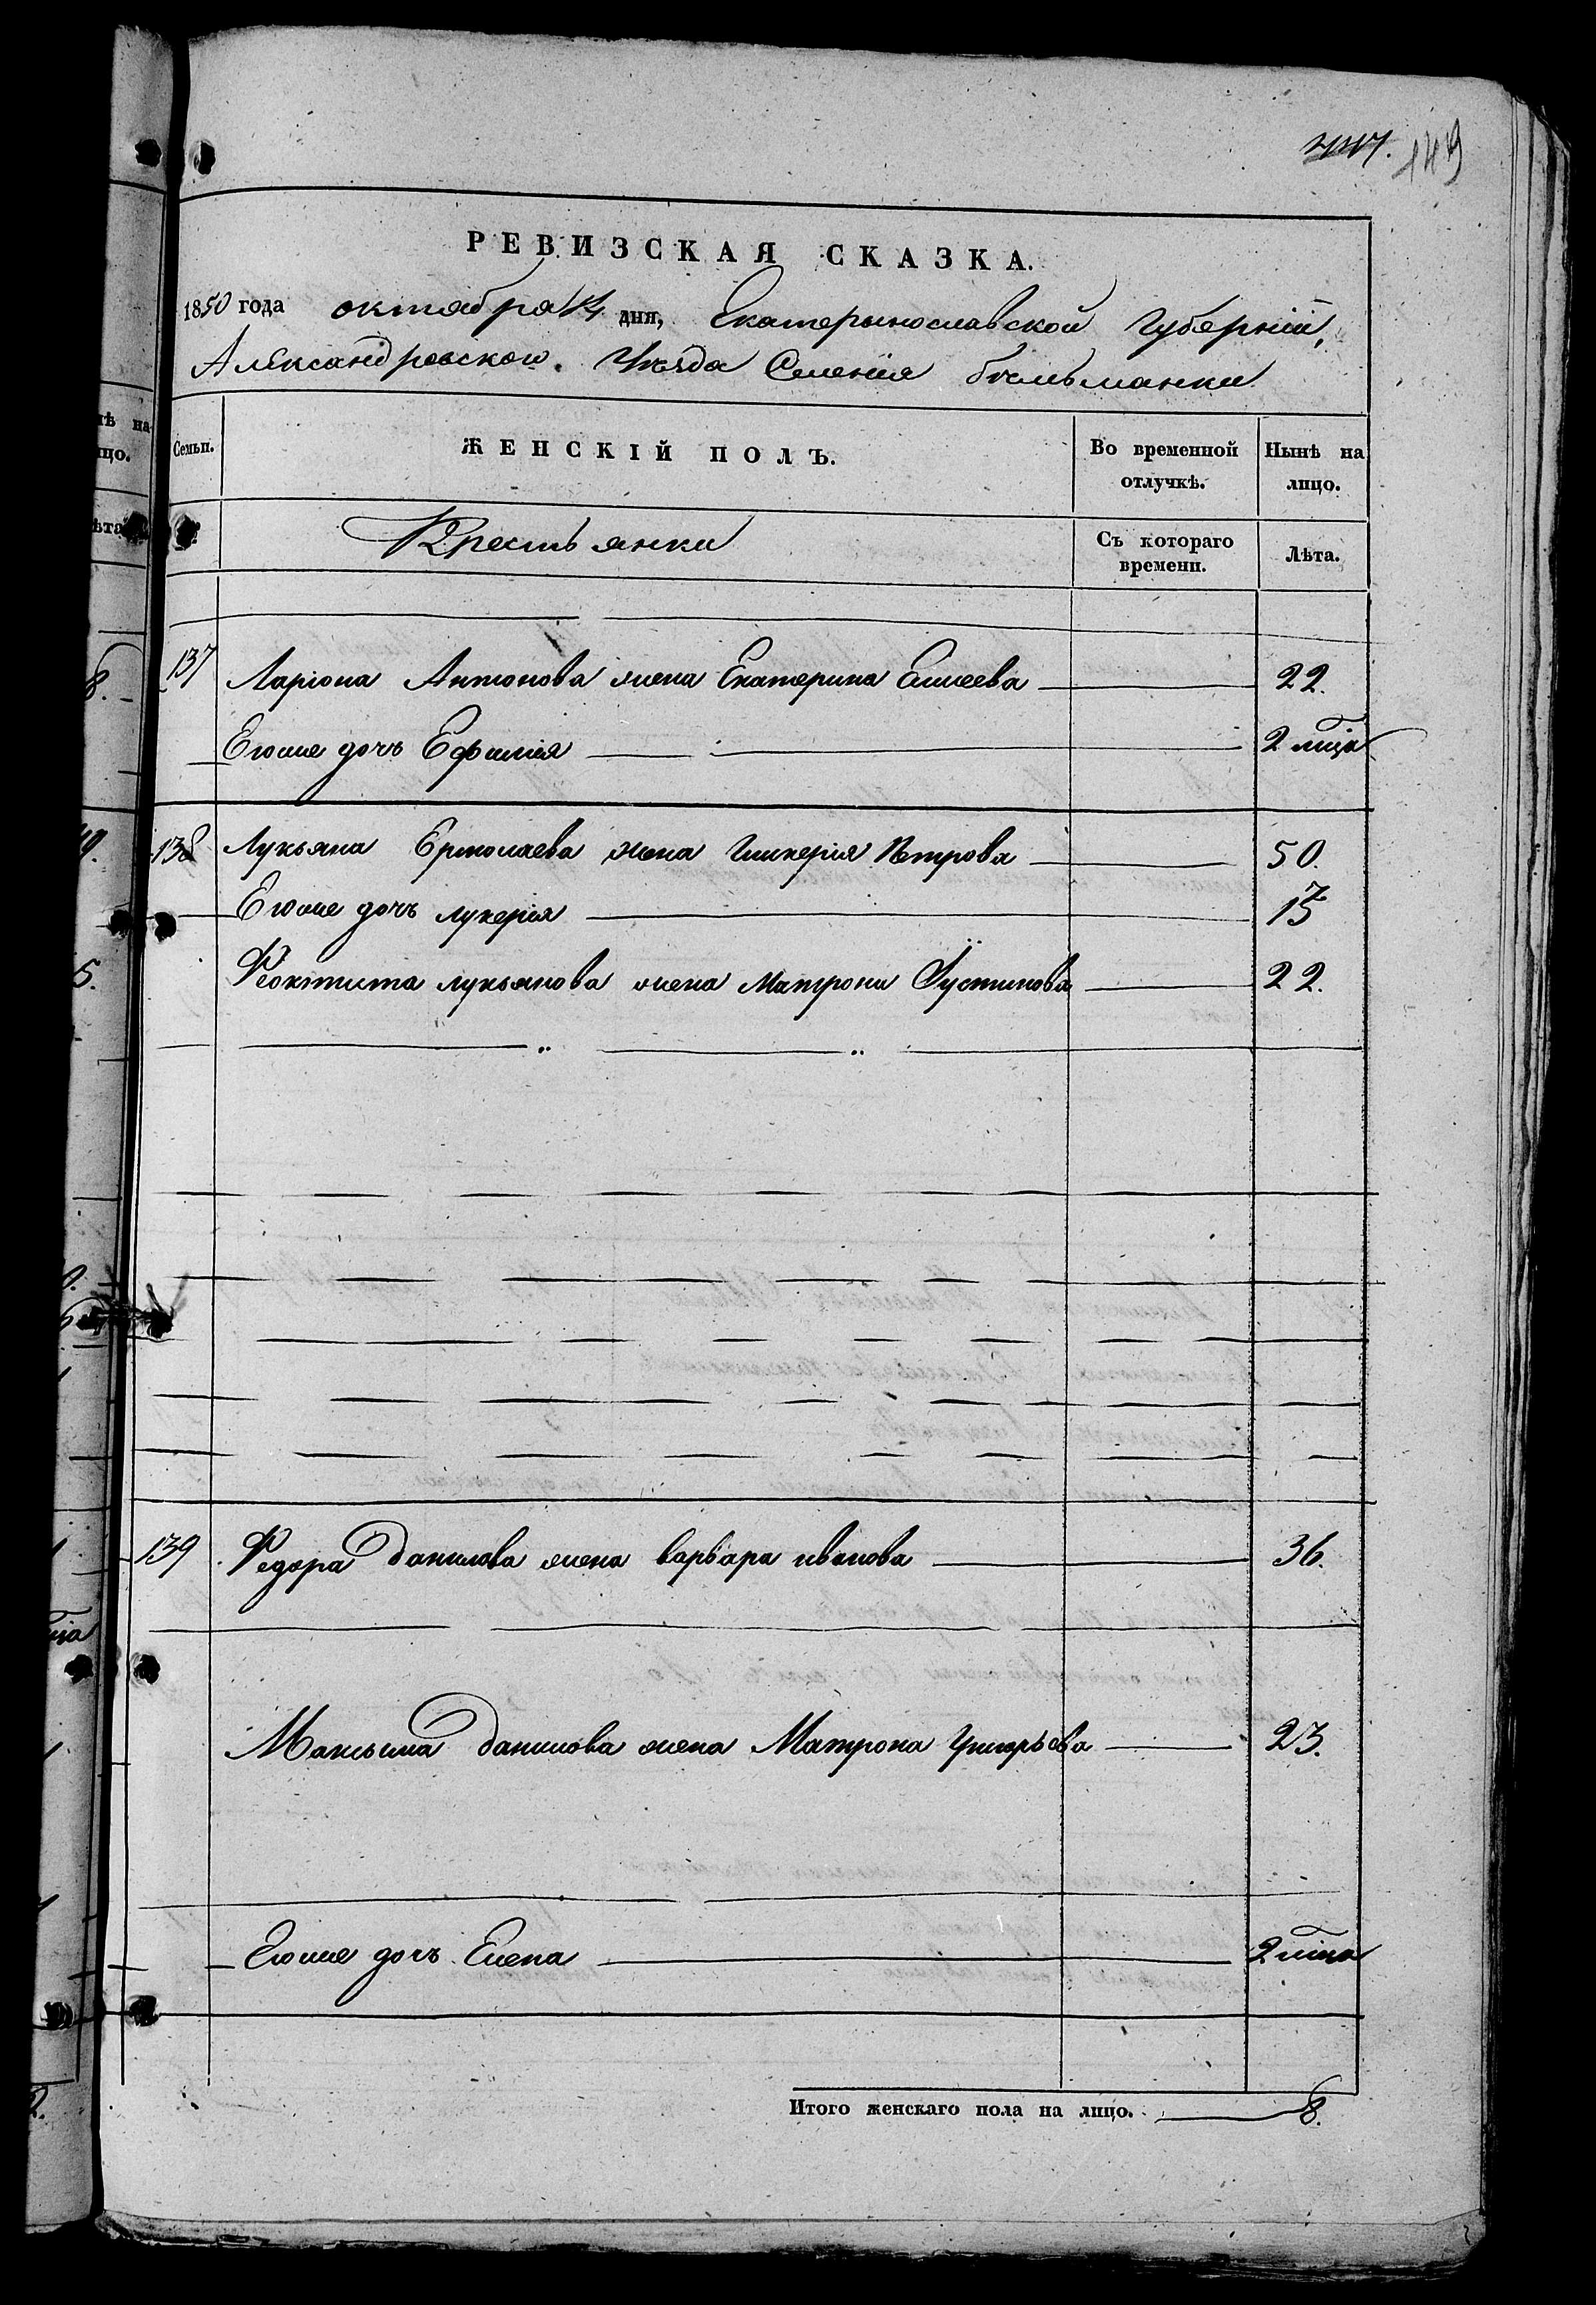 149
РЕВИЗСКАЯ СКАЗКА.
1850 года октября 14 дня, Екатерынославской Губерніи,
Александровскои Уѣзда Селенія
Семьи. ЖЕНСКІЙ ПОЛЪ. Во временной отлучкѣ. Нынѣ на лицо.
Крестьянки Съ котораго времени. Лѣта.
137 Ларіона Антонова жена Екатерина Елисеева 22.
Егоже дочъ Ефимія 2 мца
138 Лукьяна Ермолаева жена Гликерія Петрова 50.
Егоже дочъ лукерія 15
Феоктиста лукьянова жена Матрона Іустинова 22.
139 Федора данилова жена варвара иванова 36.
Максыма данилова жена Матрона Григорьева 23.
Егоже дочъ Елена 2 мца
Итого женскаго пола на лицо. 8.